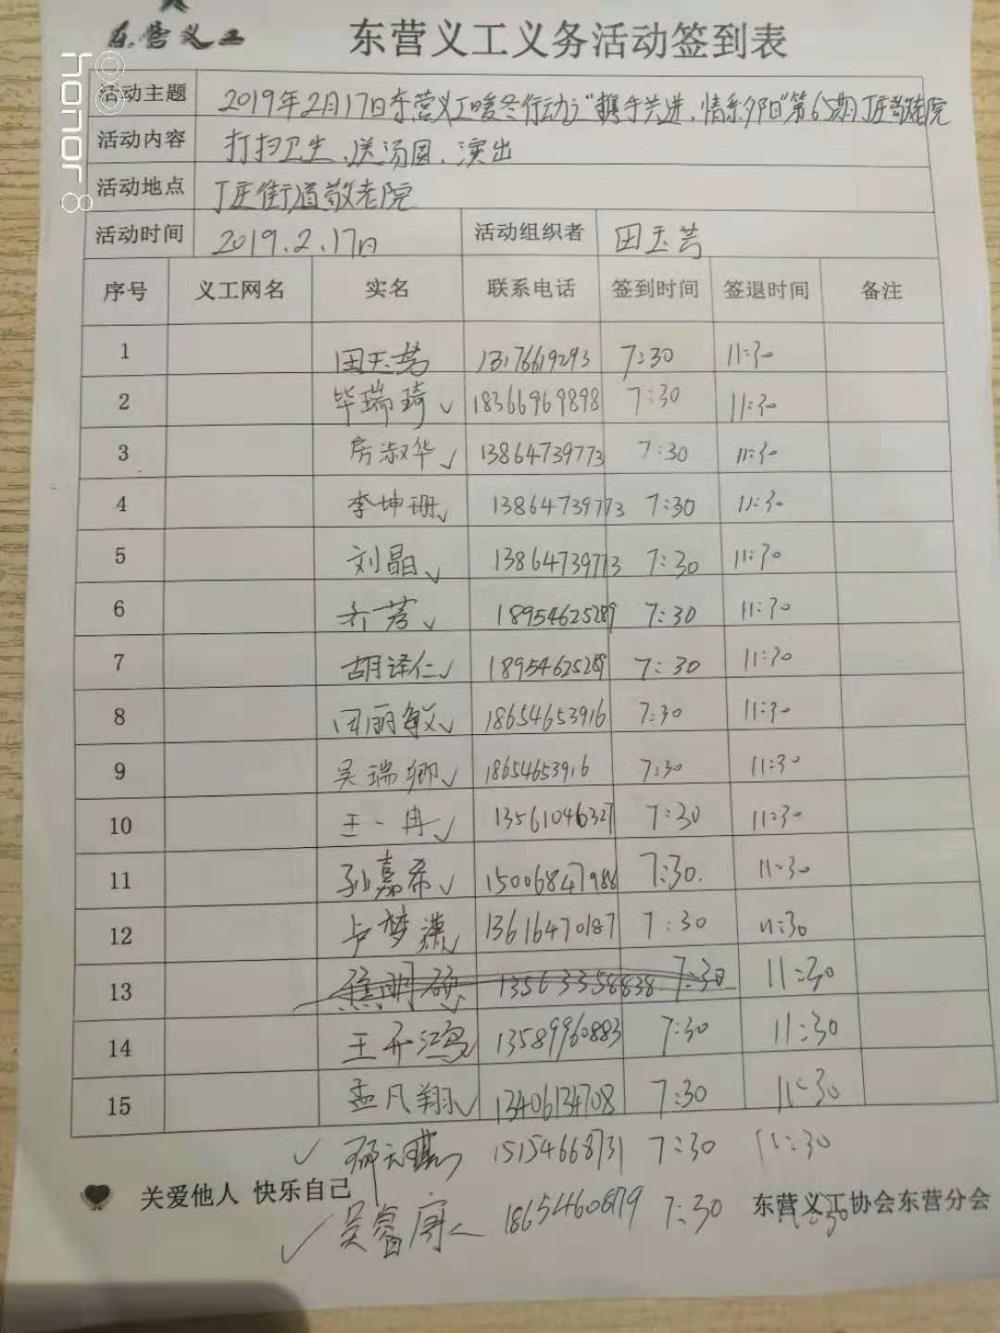 东营义工
东营义工义务活动签到表
honor 8
活动主题 2019年2月17日东营义工暖冬行动之"携手共进,情系夕阳"第65期丁庄敬老院
活动内容 打扫卫生、送汤圆、演出
活动地点 丁庄街道敬老院
活动时间 2019.2.17日 活动组织者 田玉芳
序号 义工网名 实名 联系电话 签到时间 签退时间 备注
1 田玉芳 13176619293 7:30 11:30
2 毕瑞琦✓ 18366969898 7:30 11:30
3 房淑华✓ 13864739773 7:30 11:30
4 李坤珊✓ 13864739773 7:30 11:30
5 刘晶✓ 13864739773 7:30 11:30
6 乔芳✓ 18954625289 7:30 11:30
7 胡译仁✓ 18954625289 7:30 11:30
8 田丽敏✓ 18654653916 7:30 11:30
9 吴瑞卿✓ 18654653916 7:30 11:30
10 王一冉✓ 13561046327 7:30 11:30
11 孙嘉希✓ 15006847986 7:30. 11:30
12 卢梦潇 13616470187 7:30 11:30
13 焦明硕 13563358838 7:30 11:30
14 王开鸿 13589960883 7:30 11:30
15 孟凡翔✓ 13406134708 7:30 11:30
✓ 15154668731 7:30 11:30
关爱他人 快乐自己 东营义工协会东营分会
✓ 吴睿 18654460879 7:30 11:30